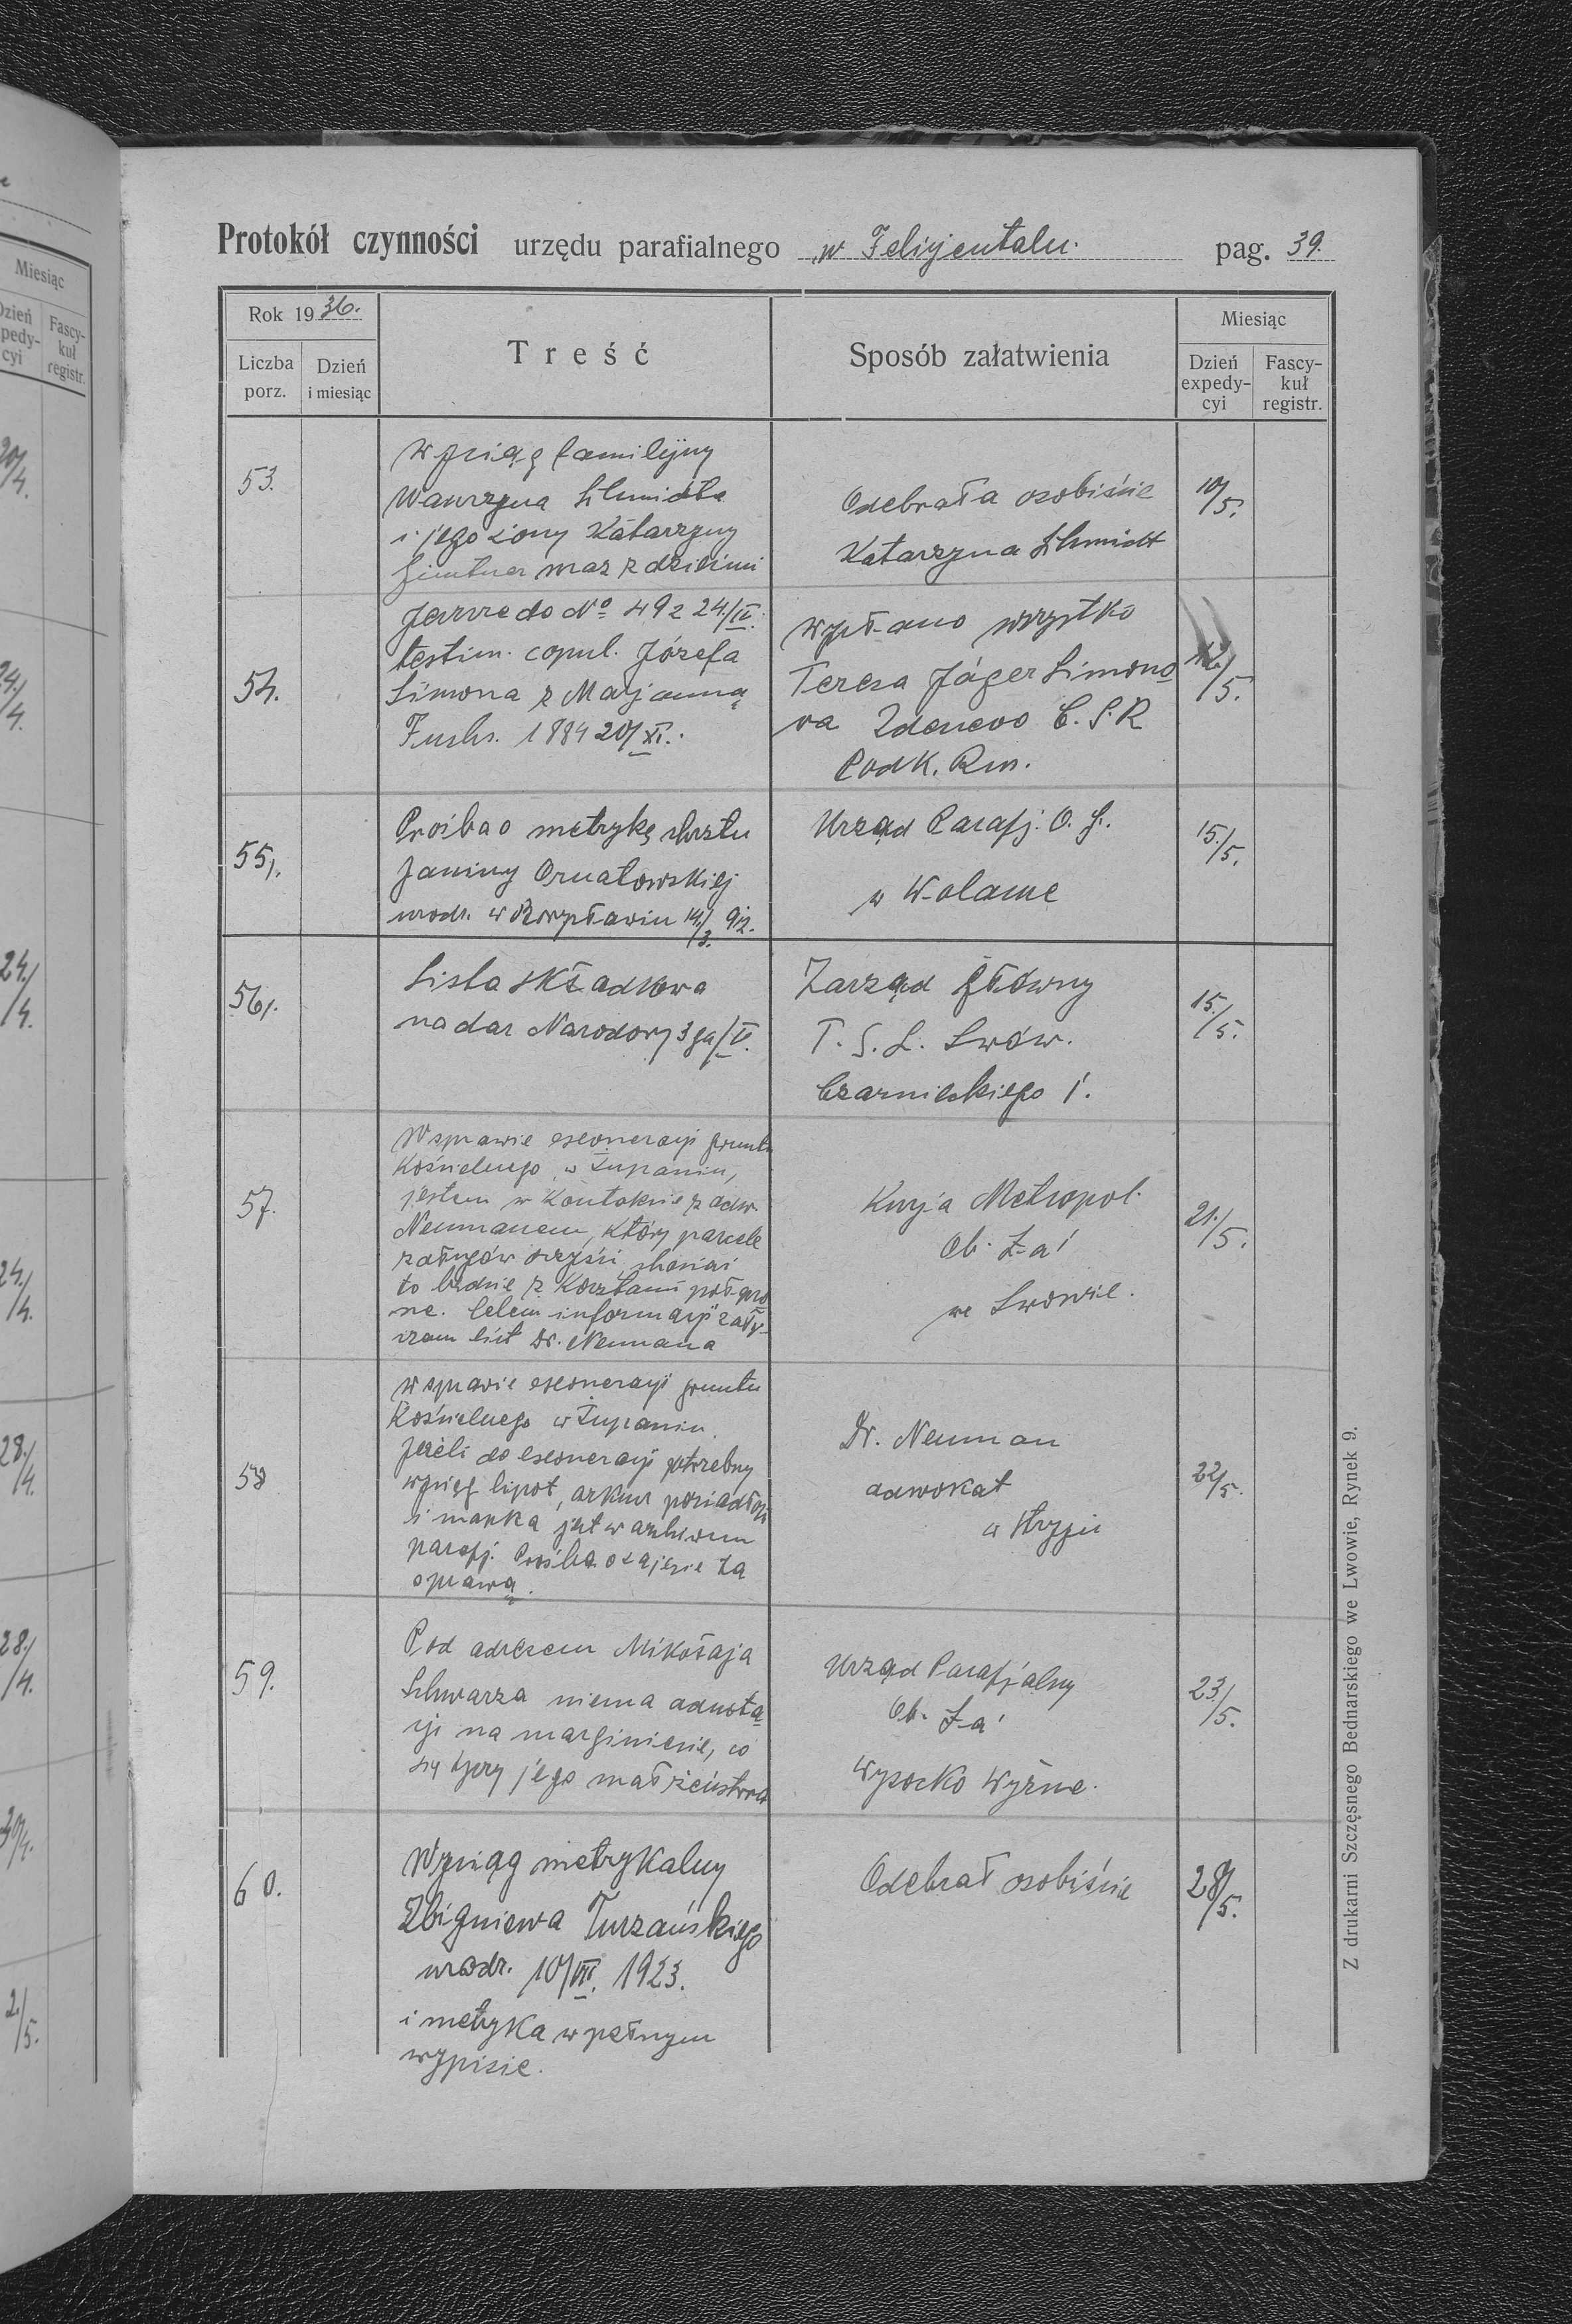 Protokół czynności urzędu parafialnego w Felizjentalu. pag. 39.
Rok 1936.
Liczba porz.
Dzień i miesiąc
Treść
Sposób załatwienia
Miesiąc
Dzień expedycyi
Fascykuł registr.
53.
Wyciąg familijny
Wawrzyna Schmidta
i jego żony Katarzyny
wraz z dziećmi
Odebrała osobiście
Katarzyna Schmidt
10/5.
54.
do No 49 z 24./IV.
testim. copul. Józefa
Simona z Marjanną
Fuchs. 1884 20/XI.
wszystko
Teresa Jáger Simono
va Zdenevo Č.S.R
Podk. Rus.
12./5.
55.
Prośba o metrykę chrztu
Janiny Ornatowskiej
urodz. w Borysławiu 14./3. 912.
Urząd Parafj. O. Ł.
w Wołance
15./5.
56.
Lista składkowa
na dar Narodowy 3 go/V.
Zarząd Główny
T. S. L. Lwów.
Czarnieckiego 1.
15./5.
57.
W sprawie gruntu
Kościelnego w Żupaniu,
jestem w Kontakcie z adw.
Neumanem, który parcele
z długów oczyści, chociaż
to będzie z Kosztami połączo
ne. Celem informacji załą-
czam list Dr. Neumana
Kurja Metropol.
Ob. Łać
we Lwowie.
21./5.
58
W sprawie gruntu
Kościelnego w Żupaniu.
Jeżeli do potrzebny
wyciąg hipot., arkusz posiadłości
i mapka jest w archiwum
parafj. Prośba o zajęcie
sprawą.
Dr. Neuman
adwokat
w Stryju
22/5.
59.
Pod adresem Mikołaja
Schwarza niema adnota
cji na marginesie, co
się tyczy jego małżeństwa
Urząd Parafjalny
Ob. Łać
Wysocko Wyżne.
23./5.
60.
Wyciąg metrykalny
Zbigniewa Turzańskiego
urodz. 10/VIII. 1923.
i metryka w pełnym
wypisie.
Odebrał osobiście
28/5.
Z drukarni Szczęsnego Bednarskiego we Lwowie, Rynek 9.
Miesiąc
Dzień expedycyi
Fascykuł registr.
20/4.
24./4.
24./4.
24./4.
28./4.
28./4.
30/4.
2./5.